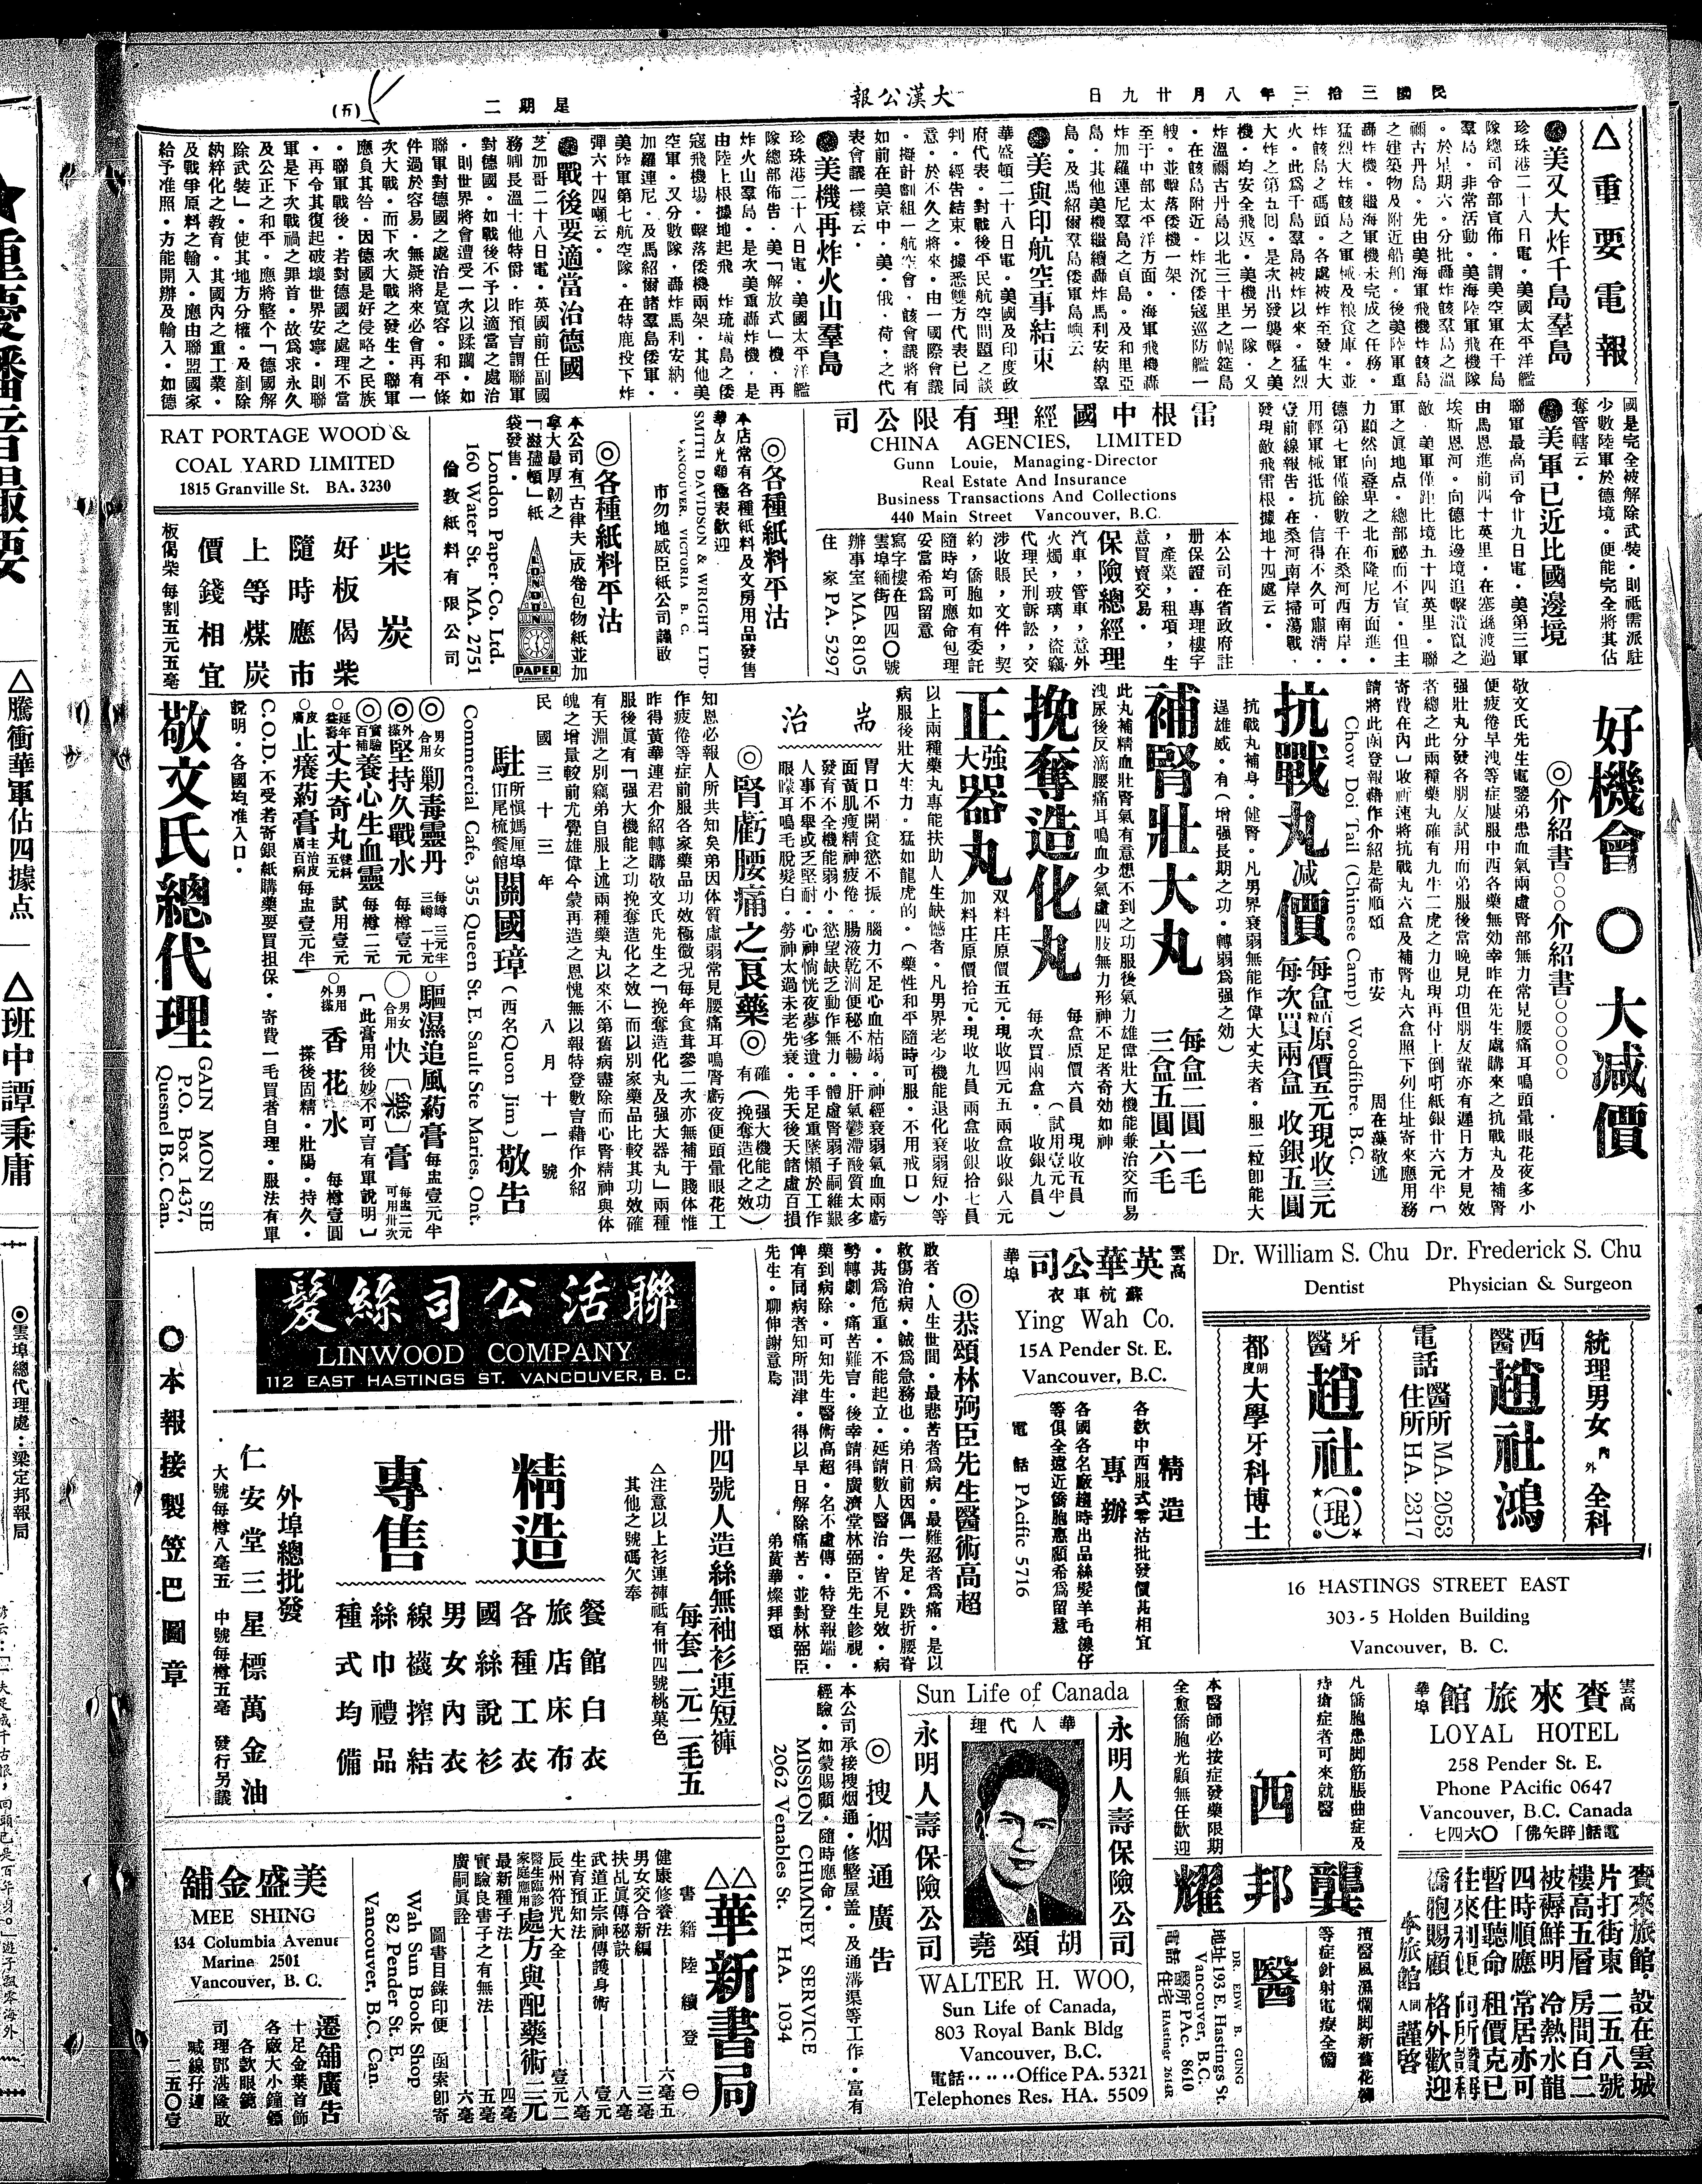 民國三拾三年八月廿九日
大漢公報
星期二
(五)
△重要電報
◉美又大炸千島羣島
珍珠港二十八日電・美國太平洋艦
隊總司令部宣佈・謂美空軍在千島
羣島・非常活動・美海陸軍飛機隊
・於星期六・分批轟炸該羣島之溫
禰古丹島・先由美海軍飛機炸該島
之建築物及附近船舶・後美陸軍重
轟炸機・繼海軍機未完成之任務・
猛烈大炸該島之軍械及粮食庫・並
炸該島之碼頭・各處被炸至發生大
火・此為千島羣島被炸以來・猛烈
大炸之第五回・是次出發襲擊之美
機・均安全飛返・美機另一隊・又
炸溫禰古丹島以北三十里之幌筵島
・在該島附近・炸沉倭寇巡防艦一
艘・並擊落倭機一架・
至于中部太平洋方面・海軍飛機轟
炸加羅連尼羣島之貞島・及和里亞
島・其他美機繼續轟炸馬利安納羣
島・及馬紹爾羣島倭軍島嶼云
◉美與印航空事結束
華盛頓二十八日電・美國及印度政
府代表・對戰後平民航空問題之談
判・經告結束・據悉雙方代表已同
意・於不久之將來・由一國際會議
・擬計劃組一航空會・該會議將有
如前在美京中・美・俄・荷・之代
表會議一樣云・
◉美機再炸火山羣島
珍珠港二十八日電・美國太平洋艦
隊總部佈告・美「解放式」機・再
炸火山羣島・是次美重轟炸機・是
由陸上根據地起飛 炸琉璜島之倭
寇飛機場・擊落倭機兩架・其他美
空軍・又分數隊・轟炸馬利安納・
加羅連尼・及馬紹爾諸羣島倭軍・
美陸軍第七航空隊・在特鹿投下炸
彈六十四噸云・
◉戰後要適當治德國
芝加哥二十八日電・英國前任副國
務卿長溫士他特爵・昨預言謂聯軍
對德國・如戰後不予以適當之處治
・則世界將會遭受一次以蹂躪・如
聯軍對德國之處治是寬容・和平條
件過於容易・無疑將來必會再有一
次大戰・而下次大戰之發生・聯軍
應負其咎・因德國是好侵略之民族
・聯軍戰後・若對德國之處理不當
・再令其復起破壞世界安寧・則聯
軍是下次戰禍之罪首・故為求永久
及公正之和平・應將整个「德國解
除武裝」・使其地方分權・及剷除
納粹化之教育・其國內之重工業・
及戰爭原料之輸入・應由聯盟國家
給予准照・方能開辦及輸入・如德
國是完全被解除武裝・則祗需派駐
少數陸軍於德境・便能完全將其佔
奪管轄云・
◉美軍已近比國邊境
聯軍最高司令廿九日電・美第三軍
由馬恩進前四十英里・在塞遜渡過
埃斯恩河・向德比邊境追擊潰竄之
敵・美軍僅距比境五十四英里・聯
軍之眞地点・總部祕而不宣・但主
力顯然向蓬卑之北布隆尼方面進・
德第七軍僅餘數千在桑河西南岸・
用輕軍械抵抗・信得不久可肅清・
壹前線報告・在桑河南岸掃蕩戰・
發現敵飛雷根據地十四處云・
雷根中國經理有限公司
CHINA AGENCIES, LIMITED
Gunn Louie, Managing-Director
Real Estate And Insurance
Business Transactions And Collections
440 Main Street Vancouver, B.C.
本公司在省政府註
册保證・專理樓宇
，產業，租項，生
意買賣交易・
保險總經理
汽車，管車，意外
火燭，玻璃，盜竊
代理民刑訴訟，交
涉收賬，文件，契
約，僑胞如有委託
隨時均可應命包理
妥當希為留意
寫字樓在
雲埠緬街四四〇號
辦事室MA. 8105
住 家PA. 5297
◎各種紙料平沽
本店常有各種紙料及文房用品發售
華友光顧極表歡迎
SMITH DAVIDSON & WRIGHT LTD.
VANCOUVER, VICTORIA B. C.
市勿地威臣紙公司謹啟
◎各種紙料平沽
本公司有「古律夫」成卷包物紙並加
拿大最厚韌之
「滋儘頓」紙
袋發售・
London Paper Co. Ltd.
160 Water St. MA. 2751
倫敦紙料有限公司
LONDON
PAPER
RAT PORTAGE WOOD &
COAL YARD LIMITED
1815 Granville St. BA. 3230
柴炭
好板偈柴
隨時應市
上等煤炭
價錢相宜
板偈柴每割五元五毫
好機會〇大減價
◎介紹書〇〇〇介紹書〇〇〇〇〇〇
敬文氏先生電鑒弟患血氣兩處腎部無力常見腰痛耳鳴頭暈眼花夜多小
便疲倦早洩等症屢服中西各藥無効幸昨在先生處購來之抗戰丸及補腎
强壯丸分發各朋友試用而弟服後當晚見功但朋友輩亦有遲日方才見效
者總之此兩種藥丸確有九牛二虎之力也現再付上倒𠵱紙銀廿六元半〔
寄費在內〕收祈速將抗戰丸六盒及補腎丸六盒照下列住址寄來應用務
請將此函登報藉作介紹是荷順頌 市安 周在藻敬述
Chow Doi Tail (Chinese Camp) Woodfibre. B.C.
抗戰丸減價
每盒原價五元現收三元
每次買兩盒 收銀五圓
抗戰丸補身・健腎・凡男界衰弱無能作偉大丈夫者・服二粒卽能大
逞雄威・有(增强長期之功・轉弱為强之効)
補腎壯大丸
每盒二圓一毛
三盒五圓六毛
此丸補精血壯腎氣有意想不到之功服後氣力雄偉壯大機能兼治交而易
洩尿後反滴腰痛耳鳴血少氣虛四肢無力形神不足者奇効如神
挽奪造化丸
每盒原價六員 現收五員 (試用壹元半)
每次買兩盒・ 收銀九員
正强大器丸
双料庄原價五元・現收四元五兩盒收銀八元
加料庄原價拾元・現收九員兩盒收銀拾七員
以上兩種藥丸專能扶助人生缺憾者・凡男界老少機能退化衰弱短小等
病服後壯大生力・猛如龍虎的・(藥性和平隨時可服・不用戒口)
耑治
胃口不開食慾不振・腦力不足心血枯竭・神經衰弱氣血兩虧
面黃肌瘦精神疲倦・腸液乾涸便秘不暢・肝氣鬱滯酸質太多
發育不全機能弱小・慾望缺乏動作無力・體虛腎弱子嗣維艱
人事不舉或乏堅耐・心神恍恍夜夢多遺・手足重墜懶於工作
眼矇耳鳴毛脫髮白・勞神太過未老先衰・先天後天諸虛百損
◎腎虧腰痛之良藥◎
確有(强大機能之功)(挽奪造化之效)
知恩必報人所共知矣弟因体質虛弱常見腰痛耳鳴腎虧夜便頭暈眼花工
作疲倦等症前服各家藥品功效極微况每年食茸參二次亦無補于賤体惟
昨得黃華連君介紹轉購敬文氏先生之「挽奪造化丸及强大器丸」兩種
服後眞有「强大機能之功挽奪造化之效」而以別家藥品比較其功效確
有天淵之別竊弟自服上述兩種藥丸以來不第舊病盡除而心腎精神與体
魄之增量較前尤覺雄偉今蒙再造之恩愧無以報特登數言藉作介紹
民國三十三年 八月十一號
駐所慎媽厘埠山尾梳餐館關國璋(西名Quon Jim)敬告
Commercial Cafe, 355 Queen St. E. Sault Ste Maries, Ont.
◎男女合用 剿毒靈丹 每罇三元半 三罇一十元
◎外搽 堅持久戰水 每樽壹元
◎實驗百補 養心生血靈 每樽二元
〇延年益壽 丈夫奇丸 雙料五元 試用壹元
〇皮膚 止癢葯膏 主治皮膚百病 每盅壹元半
〇驅濕追風葯膏 每盅壹元半
〇男女合用 快〔樂〕膏 每盅二元 可用卅次
〔此膏用後妙不可言有單說明〕
〇男用外搽 香花水 每樽壹圓
搽後固精・壯陽・持久・
C.O.D.不受若寄銀紙購藥要買担保・寄費一毛買者自理・服法有單
說明・各國均准入口・
敬文氏總代理
GAIN MON SIE
P.O. Box 1437,
Quesnel B.C. Can.
Dr. William S. Chu Dr. Frederick S. Chu
Dentist Physician & Surgeon
統理男女內外全科
西醫趙社鴻
電話 醫所MA. 2053
住所HA. 2317
牙醫趙社(琨)
都朗度大學牙科博士
16 HASTINGS STREET EAST
303-5 Holden Building
Vancouver, B. C.
雲高華埠
英華公司
蘇杭車衣
Ying Wah Co.
15A Pender St. E.
Vancouver, B.C.
精造
各欵中西服式零沽批發價甚相宜
專辦
各國各名廠趨時出品絲髮羊毛線仔
等俱全遠近僑胞惠顧希為留意
電話 PAcific 5716
◎恭頌林弼臣先生醫術高超
啟者・人生世間・最悲苦者為病・最難忍者為痛・是以
救傷治病・誠為急務也・弟日前因偶一失足・跌折腰脊
・甚為危重・不能起立・延請數人醫治・皆不見效・病
勢轉劇・痛苦難言・後幸請得廣濟堂林弼臣先生診視・
藥到病除・可知先生醫術高超・名不虛傳・特登報端・
俾有同病者知所問津・得以早日解除痛苦・並對林弼臣
先生・聊伸謝意焉 弟黃華燦拜頌
聯活公司絲髮
LINWOOD COMPANY
112 EAST HASTINGS ST. VANCOUVER, B. C.
卅四號人造絲無袖衫連短褲
每套一元二毛五
△注意以上衫連褲祗有卅四號桃菓色
其他之號碼欠奉
精造
餐館白衣
旅店床布
各種工衣
國絲說衫
專售
男女內衣
線襪搾結
絲巾禮品
種式均備
外埠總批發
仁安堂三星標萬金油
大號每樽八毫五 中號每樽五毫 發行另議
〇本報接製笠巴圖章
雲高華埠
賚來旅館
LOYAL HOTEL
258 Pender St. E.
Phone PAcific 0647
Vancouver, B.C. Canada
電話「啤矢佛」〇六四七
賚來旅館・設在雲城
片打街東 二五八號
樓高五層 房間百二
被褥鮮明 冷熱水龍
四時順應 常居亦可
暫住聽命 租價克己
往來利便 向所讚稱
僑胞賜顧 格外歡迎
本旅館同人謹啓
凡僑胞患脚筋脹曲症及
痔瘡症者可來就醫
西醫
本醫師必按症發藥限期
全愈僑胞光顧無任歡迎
龔邦耀
擅醫風濕爛脚新舊花柳
等症針射電療全備
DR. EDW. B. GUNG
地址193 E. Hastings St.
Vancouver, B.C.
電話 醫所PAc. 8610
住宅HAstings 2614R
Sun Life of Canada
永明人壽保險公司
華人代理
胡頌堯
永明人壽保險公司
WALTER H. WOO,
Sun Life of Canada,
803 Royal Bank Bldg
Vancouver, B.C.
電話・・・・・Office PA. 5321
Telephones Res. HA. 5509
◎搜烟通廣告
本公司承接搜烟通・修整屋盖・及通溝渠等工作・富有
經驗・如蒙賜顧・隨時應命・
MISSION CHIMNEY SERVICE
2062 Venables St. HA. 1034
△△華新書局
書籍陸續登 ㊀
健康修養法 六毫五
男女交合新編 三毫
扶乩眞傳秘訣 八毫
武道正宗神傳護身術 壹元
生育預知法 八毫
辰州符咒大全 壹元二
醫生臨診家庭應用 處方與配藥術 三元
最新種子法 四毫
實驗良書子之有無法 五毫
廣嗣眞詮 六毫
圖書目錄印便 函索卽寄
Wah Sun Book Shop
82 Pender St. E.
Vancouver, B.C. Can.
美盛金舖
MEE SHING
434 Columbia Avenue
Marine 2501
Vancouver, B. C.
遷舖廣告
十足金葉首飾
各廠大小鐘錶
各欵眼鏡
司理鄧湛隆啟
喊線孖連
二五〇壹
△騰衝華軍佔四據点
△班中譚秉庸
◎雲埠總代理處：梁定邦報局